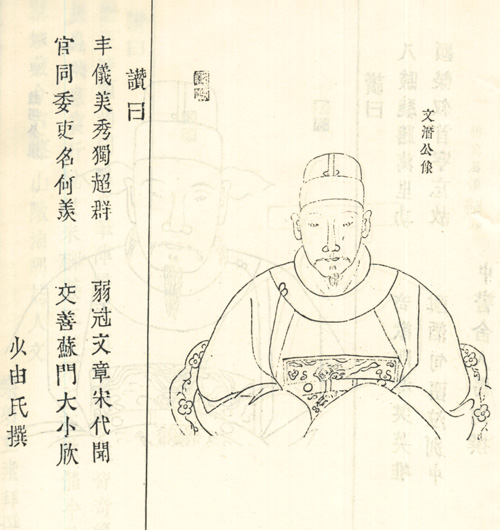 文潛公像
讚曰
丰儀美秀獨超群 弱冠文章宋代聞
官同委吏名何羨 交善蘇門大小欣
由氏撰